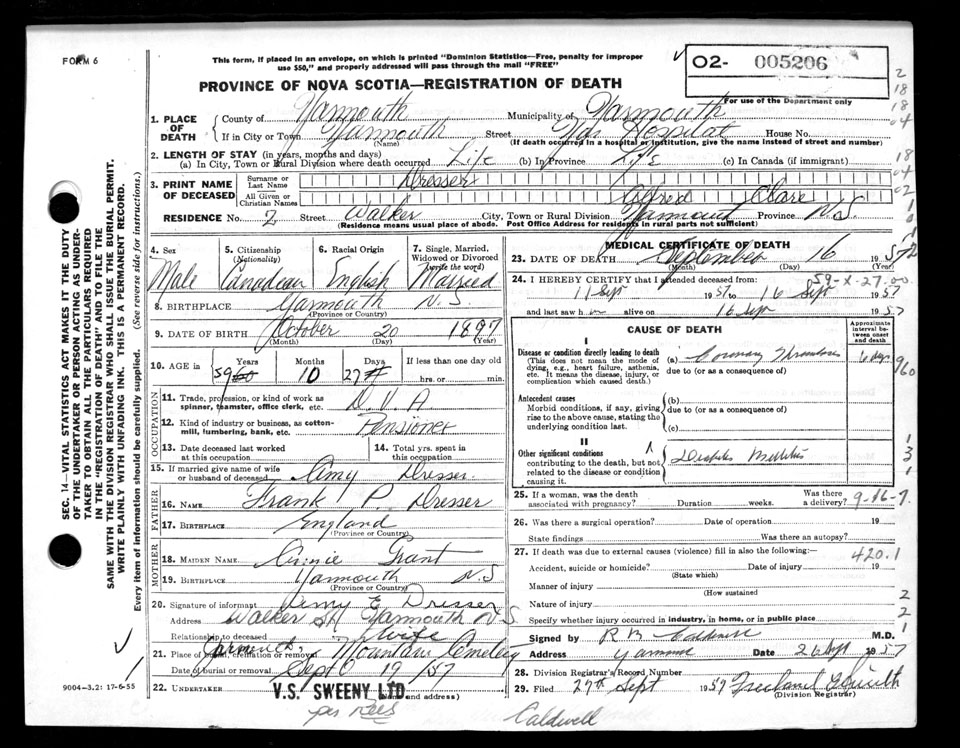 FORM 6
This form, if placed in an envelope, on which is printed "Dominion Statistics—Free, penalty for improper
use $50," and properly addressed will pass through the mail "FREE"
O2- 005206
For use of the Department only
PROVINCE OF NOVA SCOTIA—REGISTRATION OF DEATH
1. PLACE OF DEATH
County of Yarmouth Municipality of Yarmouth
If in City or Town Yarmouth Street Yar Hospital House No.
(Name) (If death occurred in a hospital or institution, give the name instead of street and number)
2. LENGTH OF STAY (in years, months and days)
(a) In City, Town or Rural Division where death occurred Life (b) In Province Life (c) In Canada (if immigrant)
3. PRINT NAME OF DECEASED
Surname or Last Name Dresser
All Given or Christian Names Alfred Clare
RESIDENCE No. 2 Street Walker City, Town or Rural Division Yarmouth Province N.S.
(Residence means usual place of abode. Post Office Address for residents in rural parts not sufficient)
4. Sex Male
5. Citizenship (Nationality) Canadian
6. Racial Origin English
7. Single, Married, Widowed or Divorced (write the word) Married
8. BIRTHPLACE Yarmouth N.S.
(Province or Country)
9. DATE OF BIRTH October 20 1897
(Month) (Day) (Year)
10. AGE in Years Months Days If less than one day old
59 10 27 hrs. or min.
OCCUPATION
11. Trade, profession, or kind of work as spinner, teamster, office clerk, etc. D.V.A
12. Kind of industry or business, as cotton-mill, lumbering, bank, etc. Pensioner
13. Date deceased last worked at this occupation
14. Total yrs. spent in this occupation
15. If married give name of wife or husband of deceased Amy Dresser
FATHER
16. NAME Frank P. Dresser
17. BIRTHPLACE England
(Province or Country)
MOTHER
18. MAIDEN NAME Annie Grant
19. BIRTHPLACE Yarmouth N.S
(Province or Country)
20. Signature of informant Amy E Dresser
Address Walker St Yarmouth N.S
Relationship to deceased Wife
21. Place of burial, cremation or removal Mountain Cemetery
Date of burial or removal Sept 19/57
22. UNDERTAKER V.S. SWEENY LTD
(Name and address)
9004—3.2: 17-6-55
MEDICAL CERTIFICATE OF DEATH
23. DATE OF DEATH September 16 1957
(Month) (Day) (Year)
24. I HEREBY CERTIFY that I attended deceased from: 59-X-27.00
11 Sept 1957 to 16 Sept 1957
and last saw h alive on 16 Sept 1957
CAUSE OF DEATH
Approximate interval between onset and death
I
Disease or condition directly leading to death
(This does not mean the mode of dying, e.g., heart failure, asthenia, etc. It means the disease, injury, or complication which caused death.)
(a) Coronary Thrombosis 6 days
due to (or as a consequence of)
Antecedent causes
Morbid conditions, if any, giving rise to the above cause, stating the underlying condition last.
(b)
due to (or as a consequence of)
(c)
II
Other significant conditions
contributing to the death, but not related to the disease or condition causing it.
Diabetes Mellitus
25. If a woman, was the death associated with pregnancy? Duration weeks. Was there a delivery?
26. Was there a surgical operation? Date of operation 19
State findings Was there an autopsy?
27. If death was due to external causes (violence) fill in also the following:— 420.1
Accident, suicide or homicide? Date of injury 19
(State which)
Manner of injury
(How sustained)
Nature of injury
Specify whether injury occurred in industry, in home, or in public place
Signed by R M Caldwell M.D.
Address Yarmouth Date 26 Sept 1957
28. Division Registrar's Record Number
29. Filed 27th Sept 1957
(Division Registrar)
Caldwell
SEC. 14—VITAL STATISTICS ACT MAKES IT THE DUTY
OF THE UNDERTAKER OR PERSON ACTING AS UNDER-
TAKER TO OBTAIN ALL THE PARTICULARS REQUIRED
IN THE "REGISTRATION OF DEATH" AND TO FILE THE
SAME WITH THE DIVISION REGISTRAR WHO SHALL ISSUE THE BURIAL PERMIT.
WRITE PLAINLY WITH UNFADING INK. THIS IS A PERMANENT RECORD.
Every item of information should be carefully supplied. (See reverse side for instructions.)